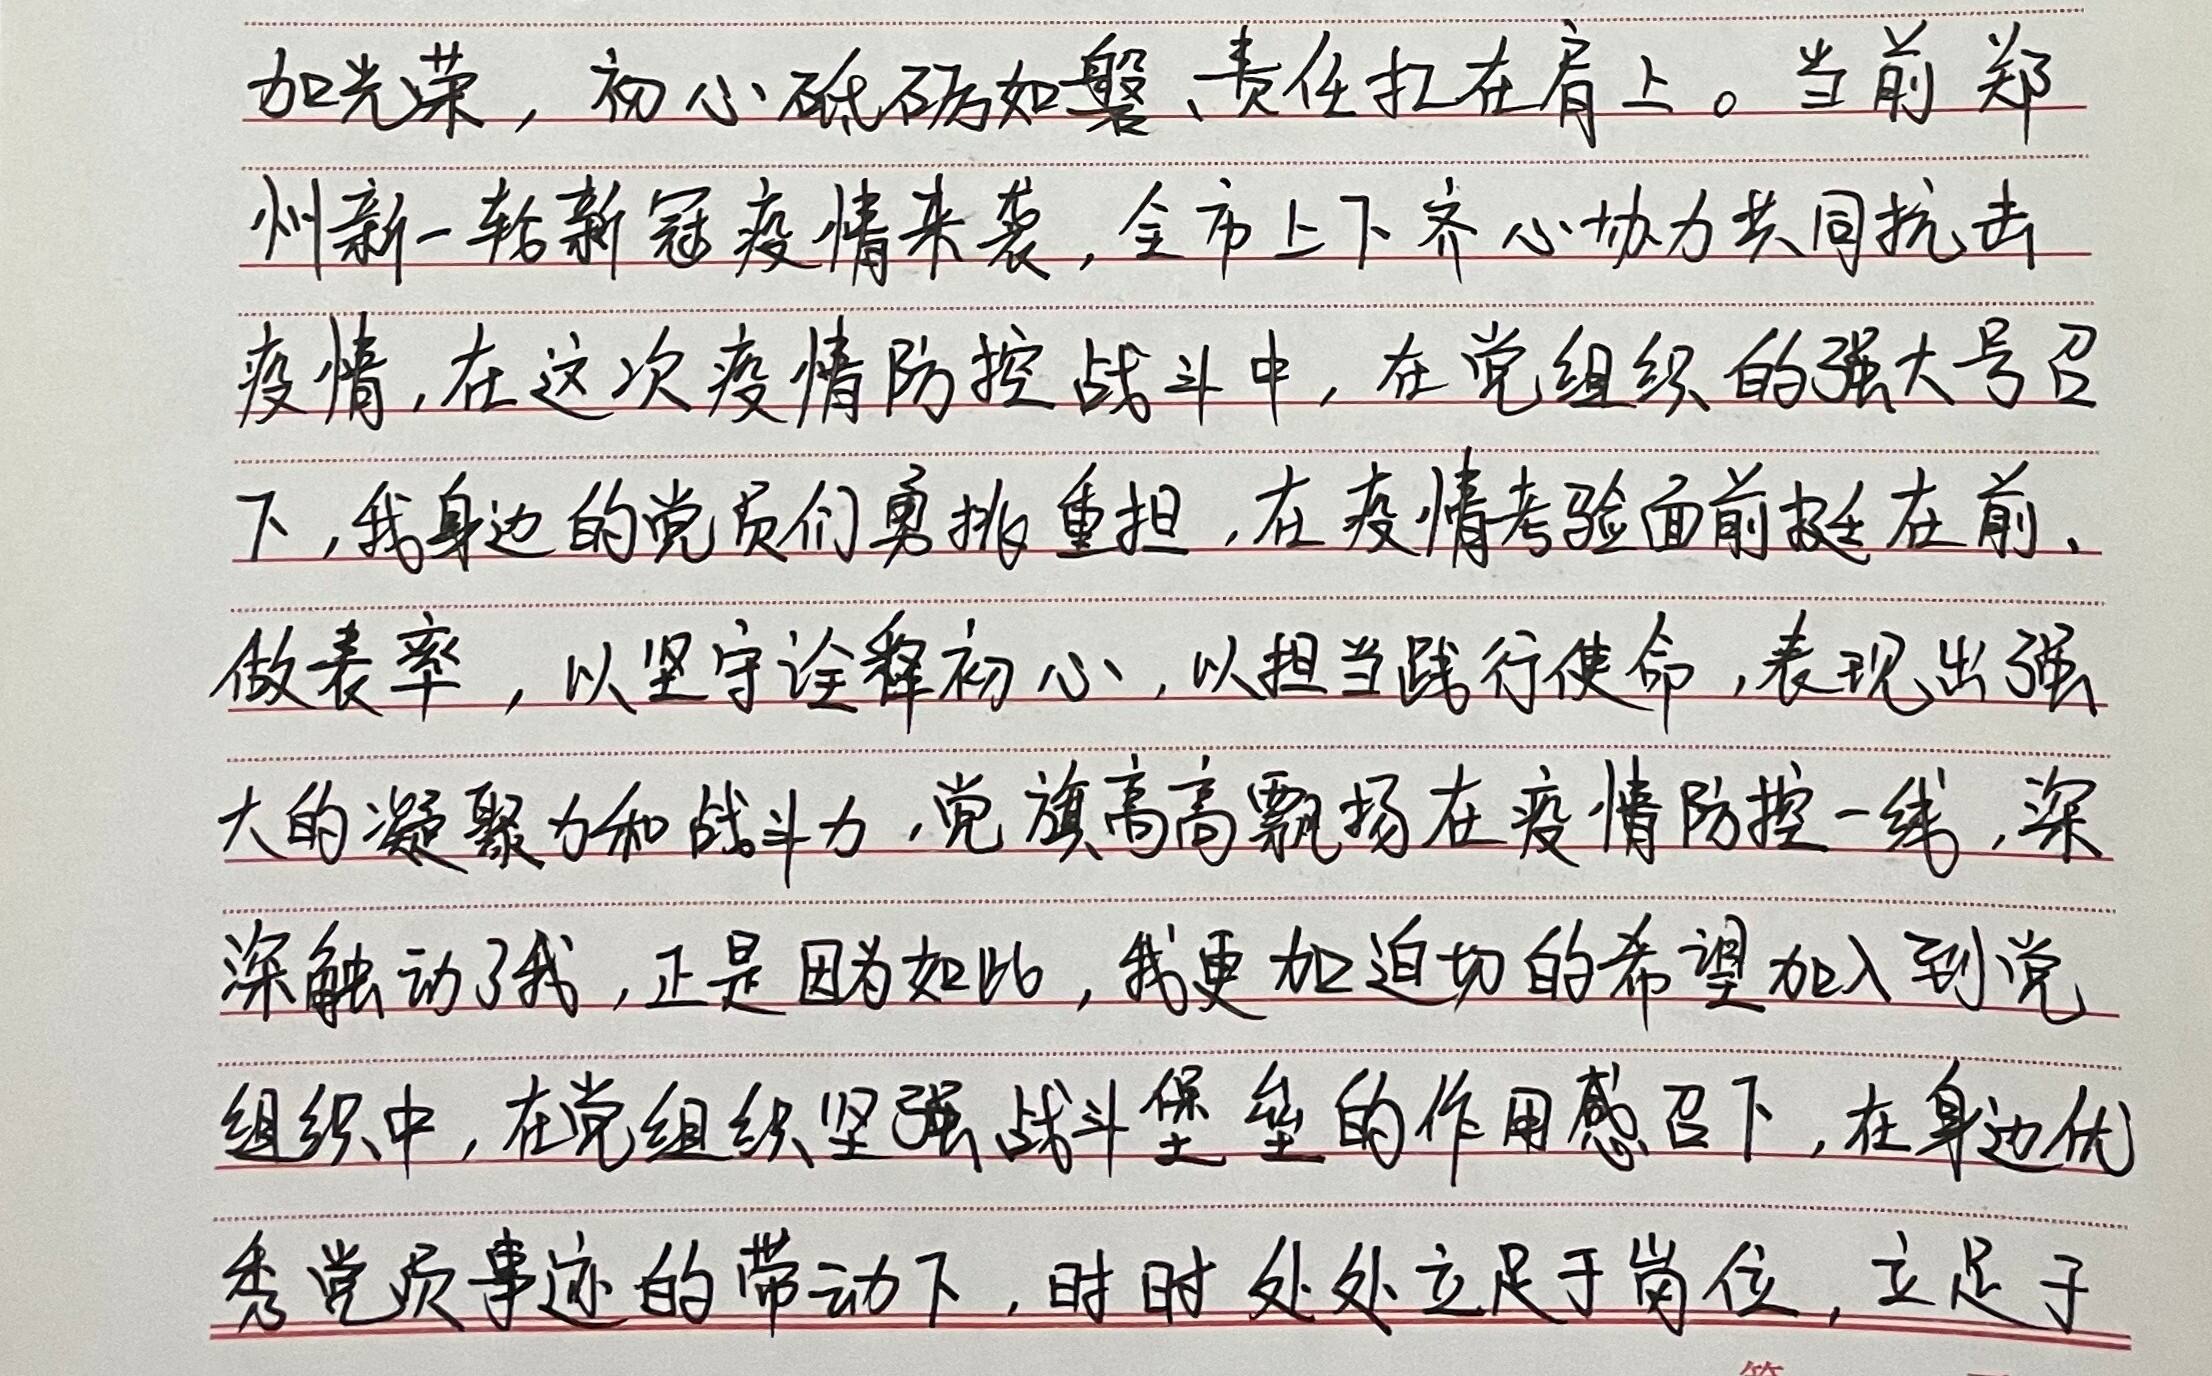 加光荣，初心砥砺如磐、责任扛在肩上。当前郑
州新一轮新冠疫情来袭，全市上下齐心协力共同抗击
疫情，在这次疫情防控战斗中，在党组织的强大号召
下，我身边的党员们勇挑重担，在疫情考验面前挺在前、
做表率，以坚守诠释初心，以担当践行使命，表现出强
大的凝聚力和战斗力，党旗高高飘扬在疫情防控一线，深
深触动了我，正是因为如此，我更加迫切的希望加入到党
组织中，在党组织坚强战斗堡垒的作用感召下，在身边优
秀党员事迹的带动下，时时处处立足于岗位，立足于